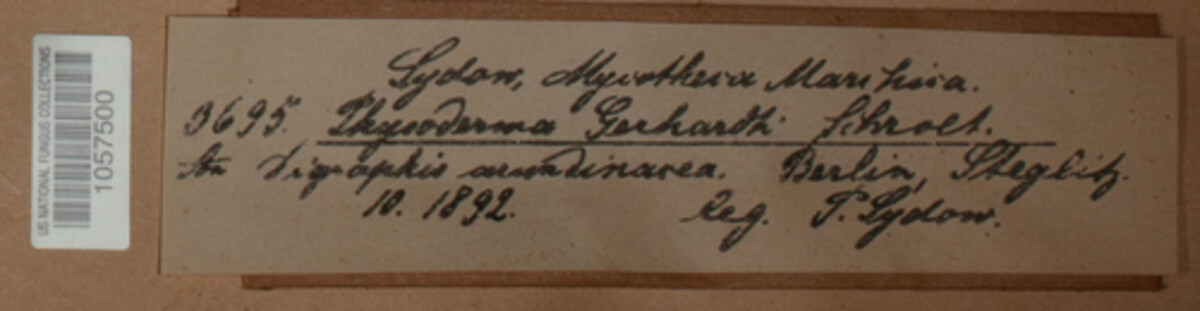 US NATIONAL FUNGUS COLLECTIONS
1057500
Sydow, Mycotheca Marchica.
3695. Physoderma Gerhardti Schroet.
An Digraphis arundinacea. Berlin, Steglitz.
10. 1892. leg. P. Sydow.